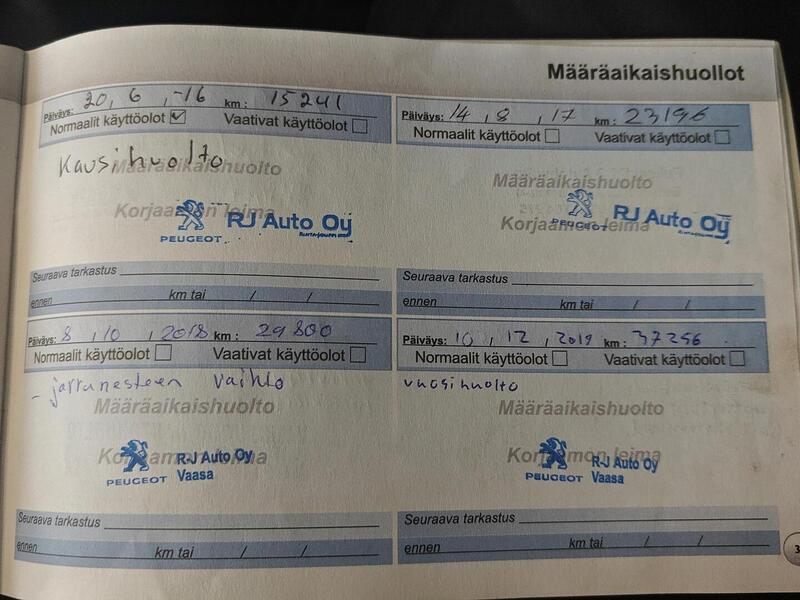 Määräaikaishuollot
Päiväys: 20, 6, -16 km: 15241
Normaalit käyttöolot Vaativat käyttöolot
Kausihuolto
Määräaikaishuolto
Korjaamon leima
PEUGEOT RJ Auto Oy
Seuraava tarkastus
ennen km tai / /
Päiväys: 14, 8, 17 km: 23196
Normaalit käyttöolot Vaativat käyttöolot
Määräaikaishuolto
Korjaamon leima
PEUGEOT RJ Auto Oy
Seuraava tarkastus
ennen km tai / /
Päiväys: 8, 10, 2018 km: 29800
Normaalit käyttöolot Vaativat käyttöolot
- jarrunesteen vaihto
Määräaikaishuolto
Korjaamon leima
R-J Auto Oy
PEUGEOT Vaasa
Seuraava tarkastus
ennen km tai / /
Päiväys: 10, 12, 2019 km: 37256
Normaalit käyttöolot Vaativat käyttöolot
vuosihuolto
Määräaikaishuolto
Korjaamon leima
R-J Auto Oy
PEUGEOT Vaasa
Seuraava tarkastus
ennen km tai / /